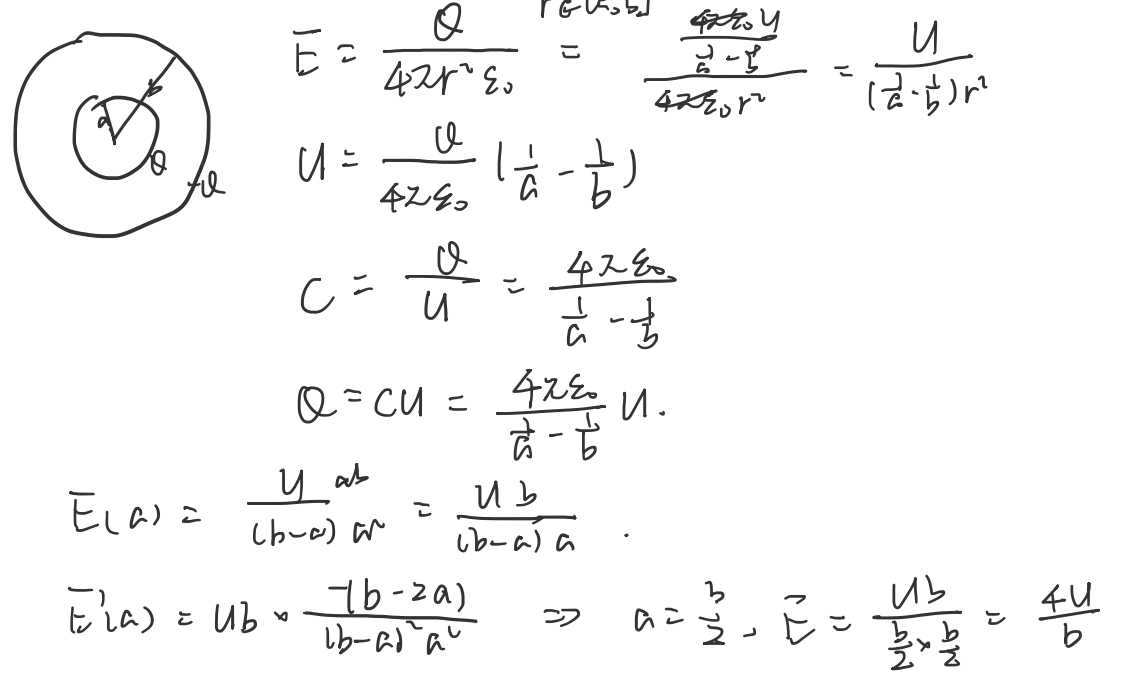 E = Q / (4πr²ε₀) = (4πε₀U / (1/a - 1/b)) / (4πε₀r²) = U / ((1/a - 1/b)r²)
a b Q -Q
U = Q / (4πε₀) (1/a - 1/b)
C = Q / U = 4πε₀ / (1/a - 1/b)
Q = CU = 4πε₀ / (1/a - 1/b) U.
E(a) = U ab / ((b-a) a²) = Ub / ((b-a) a).
E'(a) = Ub × -(b-2a) / ((b-a)²a²) ⇒ a = b/2, E = Ub / (b/2 × b/2) = 4U / b